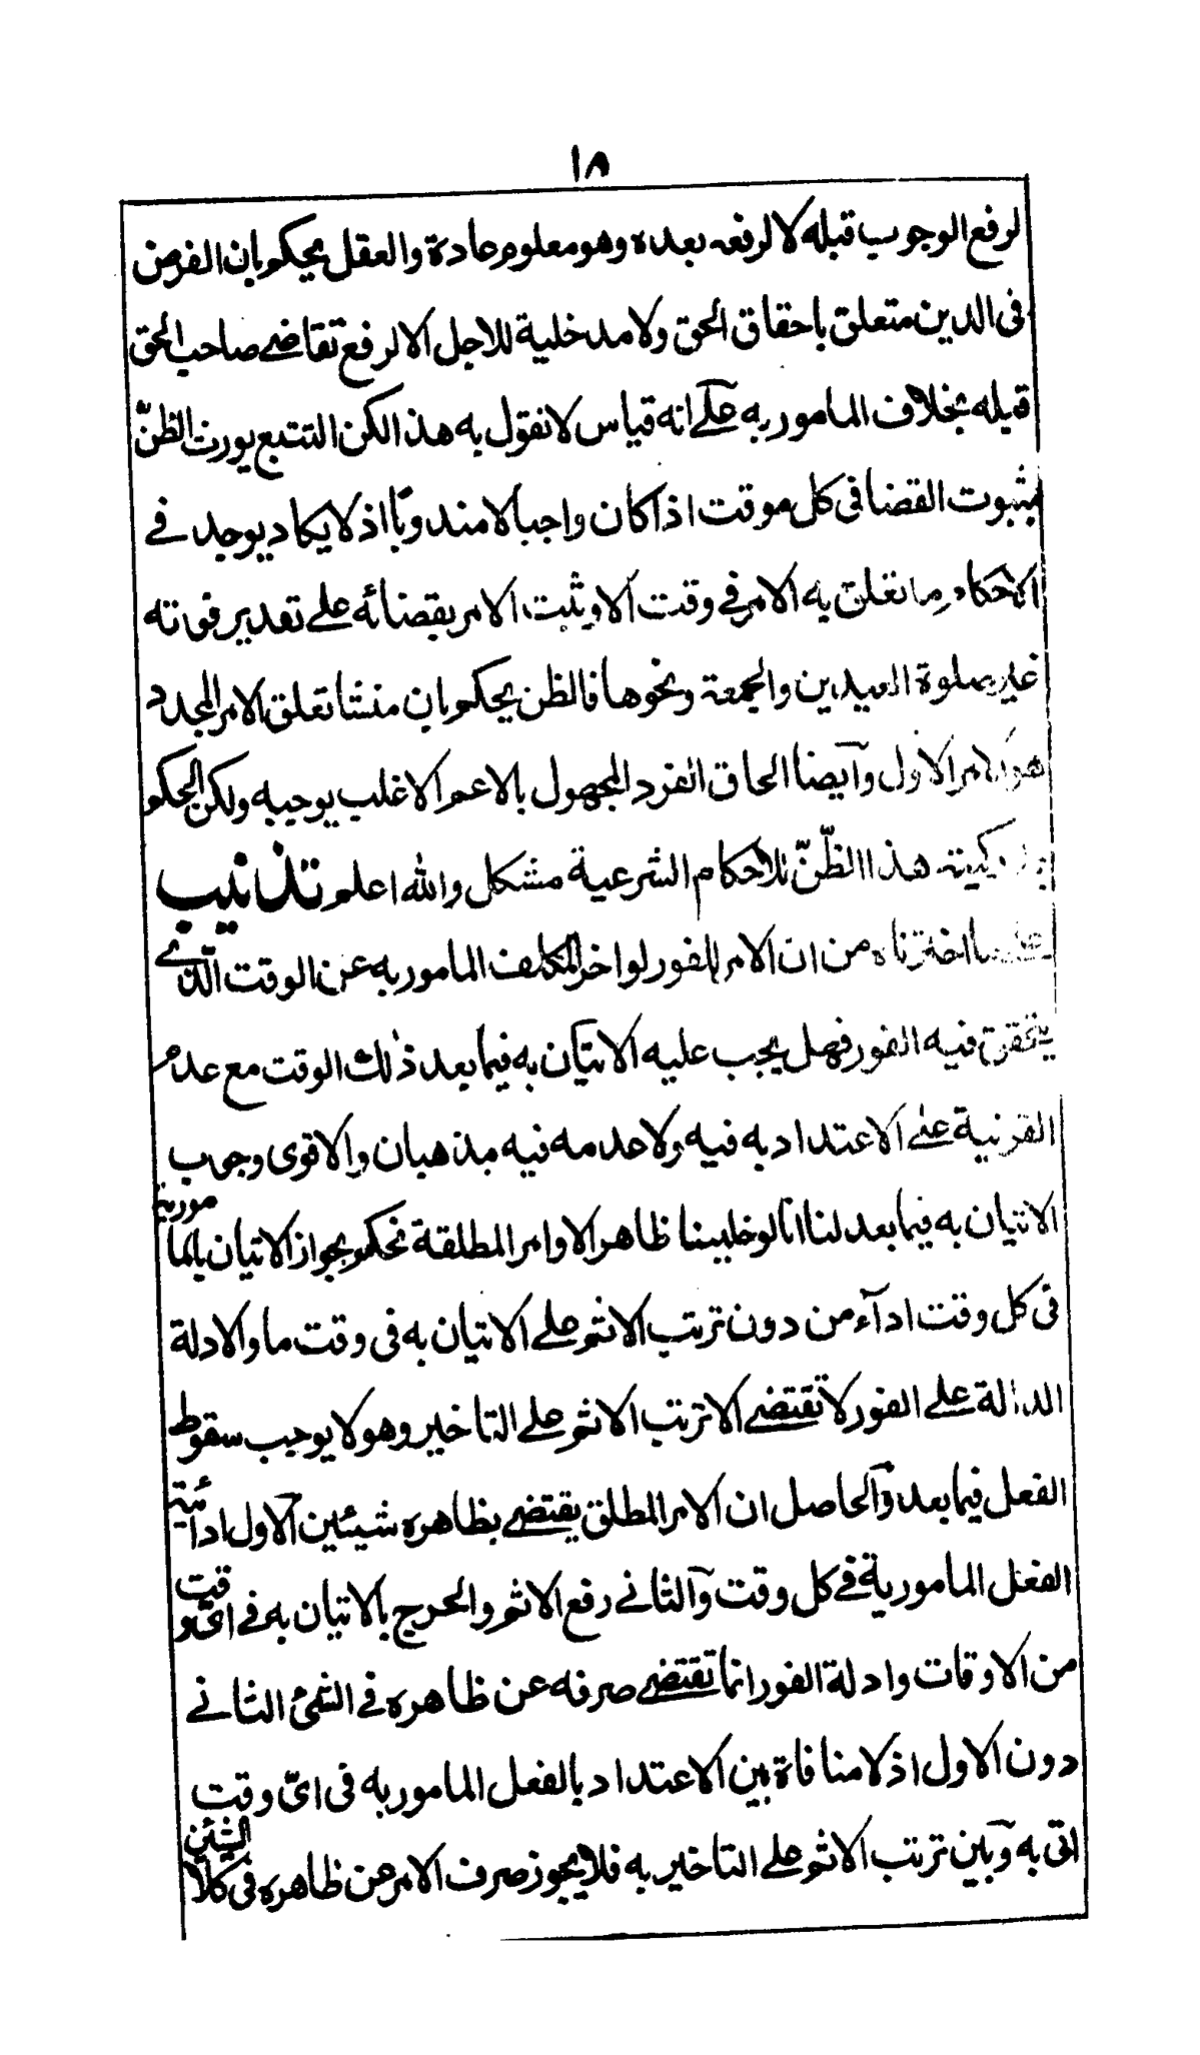 ١٨
لرفع الوجوب قبله لا لرفعه بعده وهو معلوم عادة والعقل يحكم بان الغرض
فى الدين متعلق باحقاق الحق ولا مدخلية للاجل الا لرفع تقاضے صاحب الحق
قبله بخلاف المامور به علے انه قياس لا نقول به هذا لكن التتبع يورث الظنّ
بثبوت القضا فى كل موقت اذا كان واجبا لا مندوبًا اذ لا يكاد يوجد فے
الاحكام ما تعلق به الامر فے وقت الا ويثبت الامر بقضائه علے تقدير فوته
غير صلوة العيدين والجمعة ونحوها فالظن يحكم بان منشا تعلق الامر المجدد
هو الامر الاول وآيضا الحاق الفرد المجهول بالاعم الاغلب يوجبه ولكن الحكم
هذا الظّنّ للاحكام الشرعية مشكل والله اعلم تذنيب
على ما اخترناه من ان الامر للفور لو اخر المكلف المامور به عن الوقت الّذے
يتحقق فيه الفور فهل يجب عليه الاتيان به فيما بعد ذٰلك الوقت مع عدم
القرنية علے الاعتداد به فيه ولا عدمه فيه مذهبان والاقوى وجوب
الاتيان به فيما بعد لنا انا لو خلينا ظاهر الاوامر المطلقة نحكم بجواز الاتيان بالمامور به
فى كل وقت ادآء من دون ترتب الاثم علے الاتيان به فى وقت ما والادلة
الدالة علے الفور لا تقتضے الا ترتب الاثم علے التاخير وهو لا يوجب سقوط
الفعل فيما بعد وآلحاصل ان الامر المطلق يقتضے بظاهره شيئين آلاول ادائية
الفعل المامور به فے كل وقت وآلثانے رفع الاثم والحرج بالاتيان به فے اىّ وقت
من الاوقات وادلة الفور انما تقتضے صرفه عن ظاهره فے الشئ الثانے
دون الاول اذ لا منافاة بين الاعتداد بالفعل المامور به فى اىّ وقت
اتى به وبين ترتب الاثم علے التاخير به فلا يجوز صرف الامر عن ظاهره فى كلا الشيئين